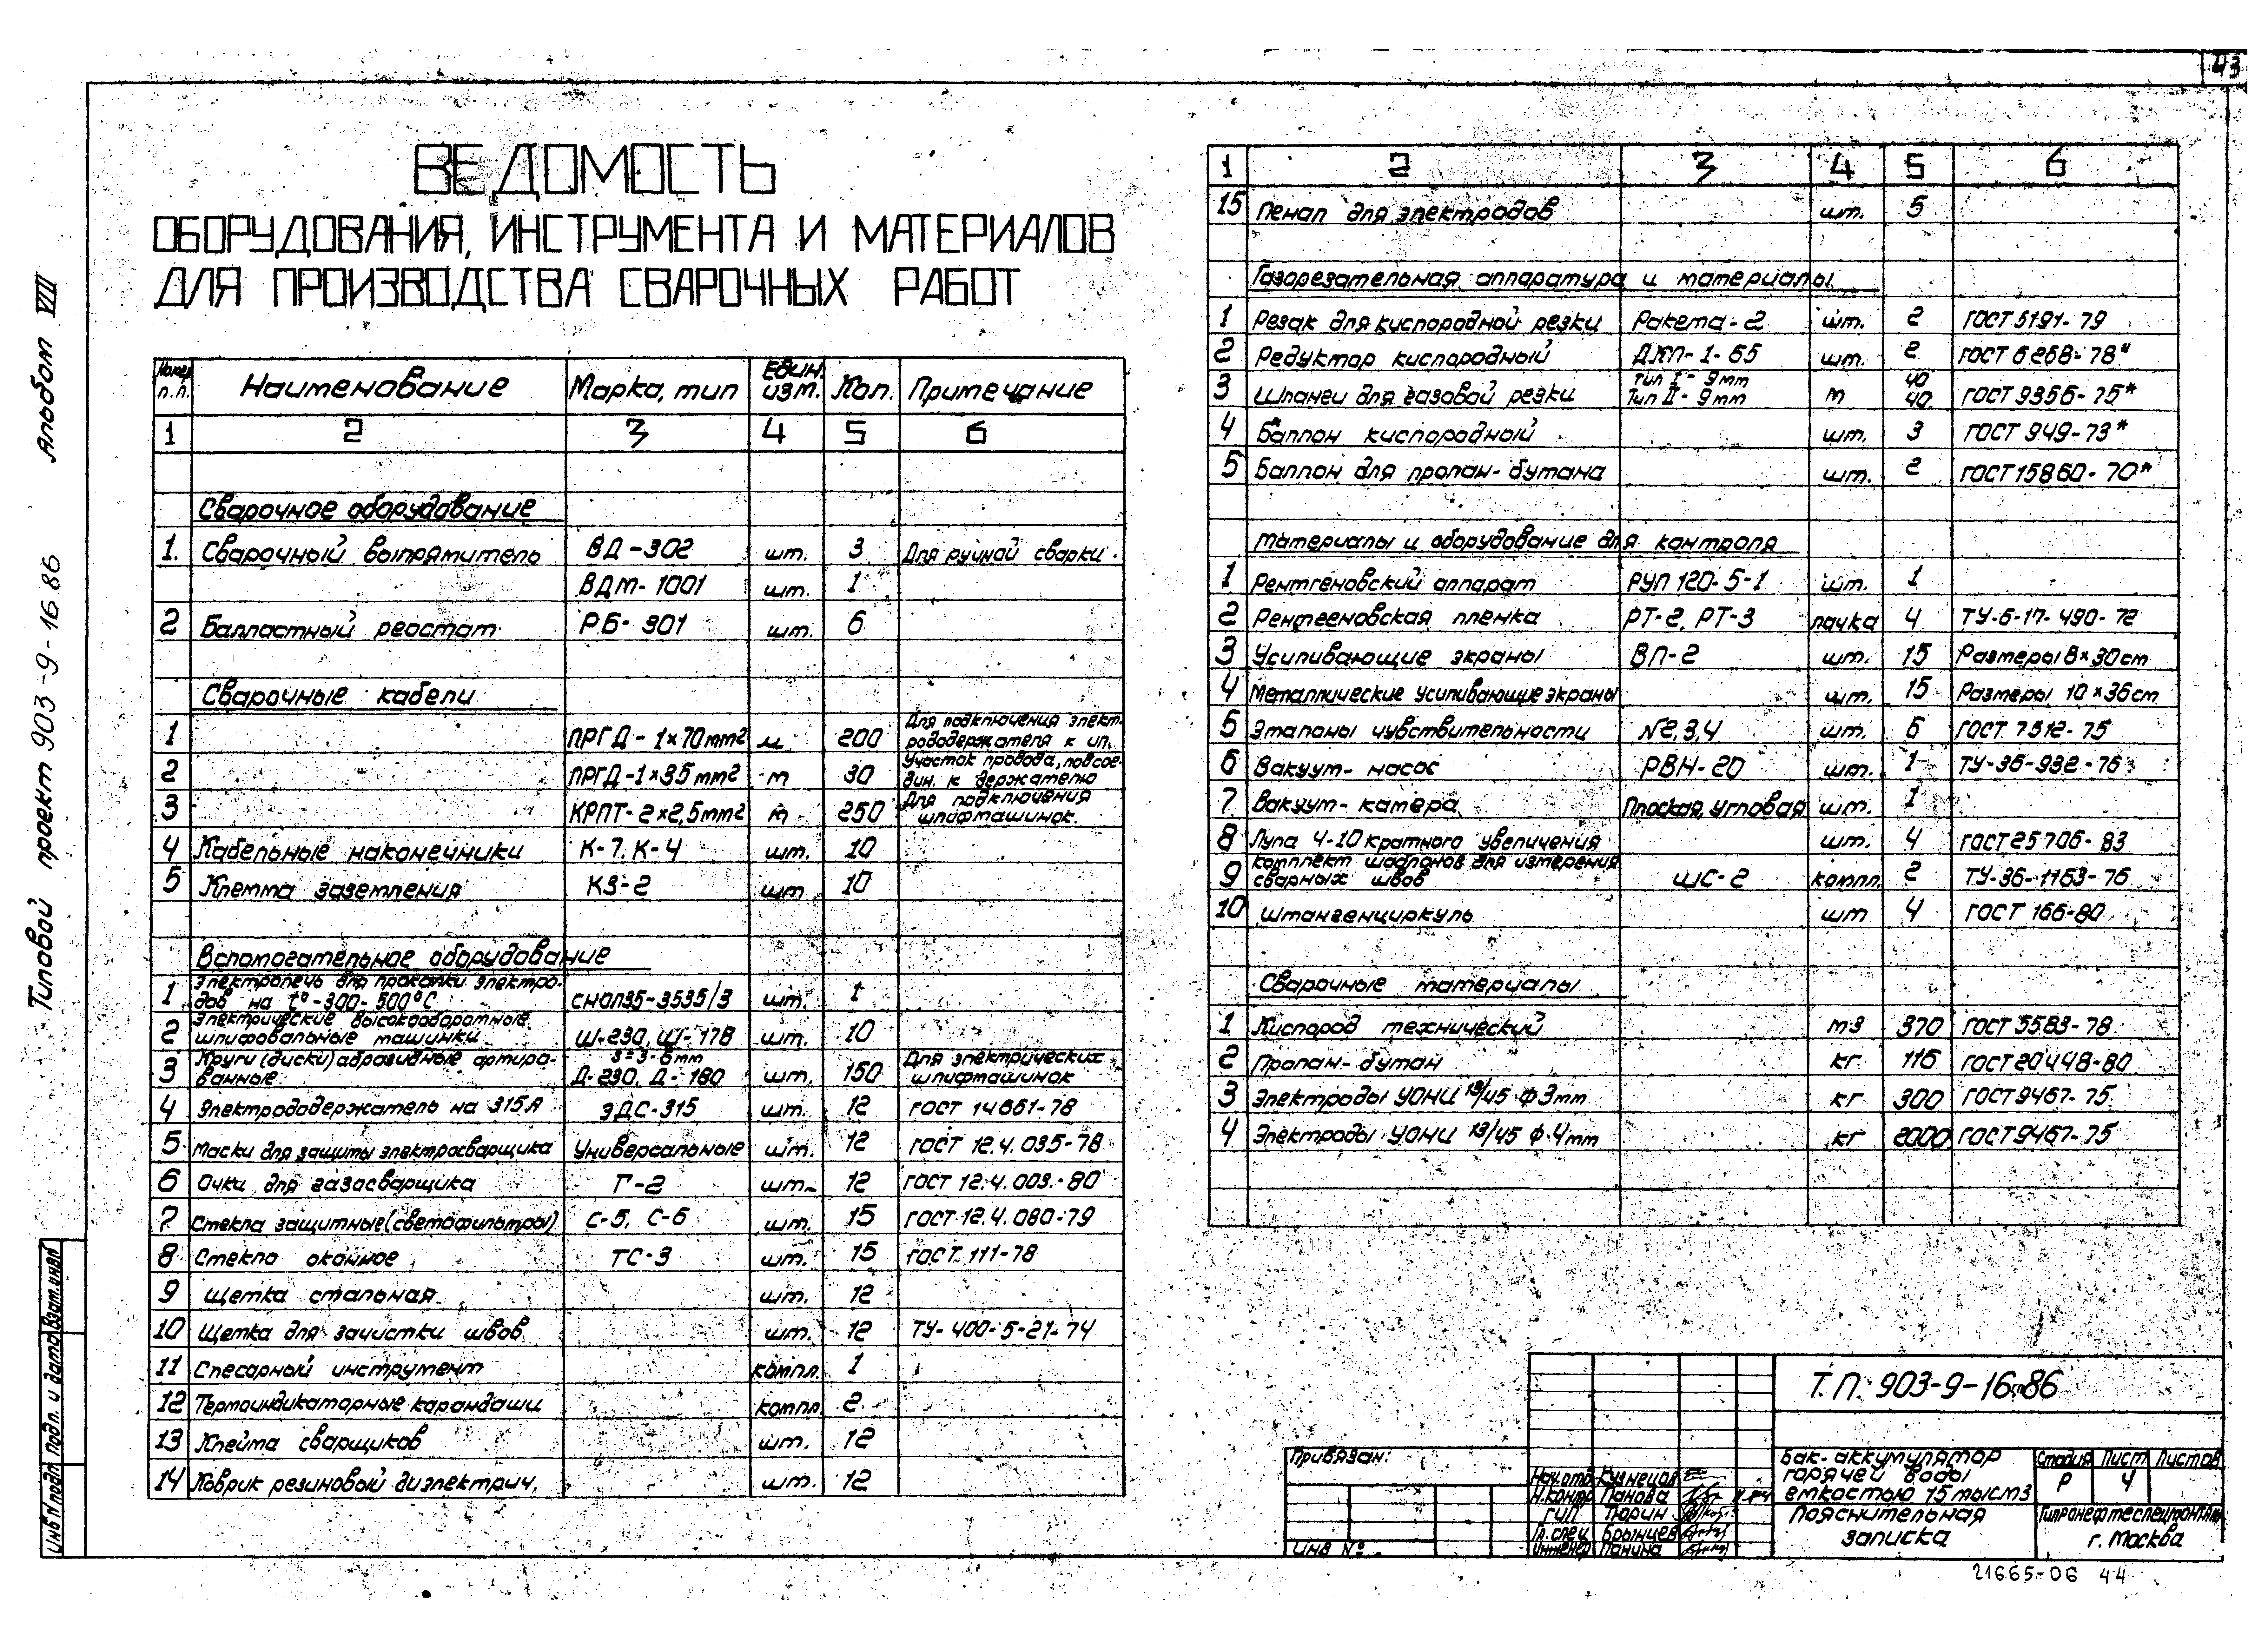 43
Альбом VIII
Типовой проект 903-9-16.86
ВЕДОМОСТЬ
ОБОРУДОВАНИЯ, ИНСТРУМЕНТА И МАТЕРИАЛОВ
ДЛЯ ПРОИЗВОДСТВА СВАРОЧНЫХ РАБОТ
Номер п.п. Наименование Марка, тип Един. изм. Кол. Примечание
1 2 3 4 5 6
Сварочное оборудование
1. Сварочный выпрямитель ВД-302 шт. 3 Для ручной сварки.
ВДМ-1001 шт. 1
2 Балластный реостат РБ-301 шт. 6
Сварочные кабели
1 ПРГД-1×70mm2 м 200 Для подключения элект-
рододержателя к ип.
2 ПРГД-1×35mm2 m 30 Участок провода, подсое-
дин. к держателю
3 КРПТ-2×2,5mm2 m 250 Для подключения
шлифмашинок.
4 Кабельные наконечники К-7, К-4 шт. 10
5 Клемма заземления КЗ-2 шт 10
Вспомогательное оборудование
1 Электропечь для прокалки электро-
дов на t°-300-500°С СНОЛ35-3535/3 шт. 1
2 Электрические высокооборотные
шлифовальные машинки Ш-230, Ш-178 шт. 10
3 Круги (диски) абразивные армиро-
ванные S=3-6mm Д-230, Д-180 шт. 150 Для электрических
шлифмашинок
4 Электрододержатель на 315А ЭДС-315 шт. 12 ГОСТ 14651-78
5 Маски для защиты электросварщика Универсальные шт. 12 ГОСТ 12.4.035-78
6 Очки для газосварщика Г-2 шт. 12 ГОСТ 12.4.003-80
7 Стекла защитные (светофильтры) С-5, С-6 шт. 15 ГОСТ 12.4.080-79
8 Стекло оконное ТС-3 шт. 15 ГОСТ 111-78
9 Щетка стальная шт. 12
10 Щетка для зачистки швов шт. 12 ТУ-400-5-21-74
11 Слесарный инструмент компл. 1
12 Термоиндикаторные карандаши компл. 2
13 Клейма сварщиков шт. 12
14 Коврик резиновый диэлектрич. шт. 12
1 2 3 4 5 6
15 Пенал для электродов шт. 5
Газорезательная аппаратура и материалы
1 Резак для кислородной резки Ракета-2 шт. 2 ГОСТ 5191-79
2 Редуктор кислородный ДКП-1-65 шт. 2 ГОСТ 6268-78*
3 Шланги для газовой резки Тип I - 9mm 40
Тип II - 9mm m 40 ГОСТ 9356-75*
4 Баллон кислородный шт. 3 ГОСТ 949-73*
5 Баллон для пропан-бутана шт. 2 ГОСТ 15860-70*
Материалы и оборудование для контроля
1 Рентгеновский аппарат РУП 120-5-1 шт. 1
2 Рентгеновская пленка РТ-2, РТ-3 пачка 4 ТУ-6-17-490-72
3 Усиливающие экраны ВП-2 шт. 15 Размеры 8×30cm
4 Металлические усиливающие экраны шт. 15 Размеры 10×36cm
5 Эталоны чувствительности №2,3,4 шт. 6 ГОСТ 7512-75
6 Вакуум-насос РВН-20 шт. 1 ТУ-36-932-76
7 Вакуум-камера Плоская, угловая шт. 1
8 Лупа 4-10 кратного увеличения шт. 4 ГОСТ 25706-83
9 Комплект шаблонов для измерения
сварных швов ШС-2 компл. 2 ТУ-36-1163-76
10 Штангенциркуль шт 4 ГОСТ 166-80
Сварочные материалы
1 Кислород технический m3 370 ГОСТ 5583-78
2 Пропан-бутан кг 116 ГОСТ 20448-80
3 Электроды УОНИ 13/45 Ф3mm кг 300 ГОСТ 9467-75
4 Электроды УОНИ 13/45 Ф4mm кг 2000 ГОСТ 9467-75
Взам. инв.№
Подп. и дата
Инв № подл
Привязан:
Инв №
Т.П. 903-9-16.86
Нач.отд Кузнецов
Н.контр Панова
ГИП Тюрин
Гл.спец Брынцев
Инженер Панина
Бак-аккумулятор
горячей воды
емкостью 15 тыс m3
Стадия Лист Листов
Р 4
Пояснительная
записка
Гипронефтеспецмонтаж
г. Москва
21665-06 44